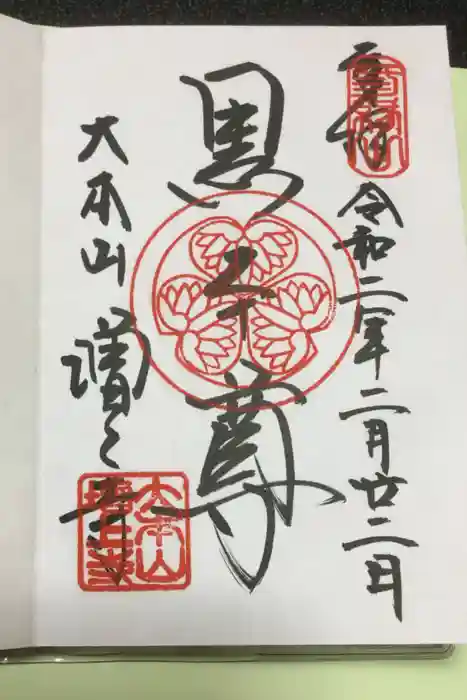 令和二年二月廿二日
黒本尊
大本山 増上寺
大本山
増上寺